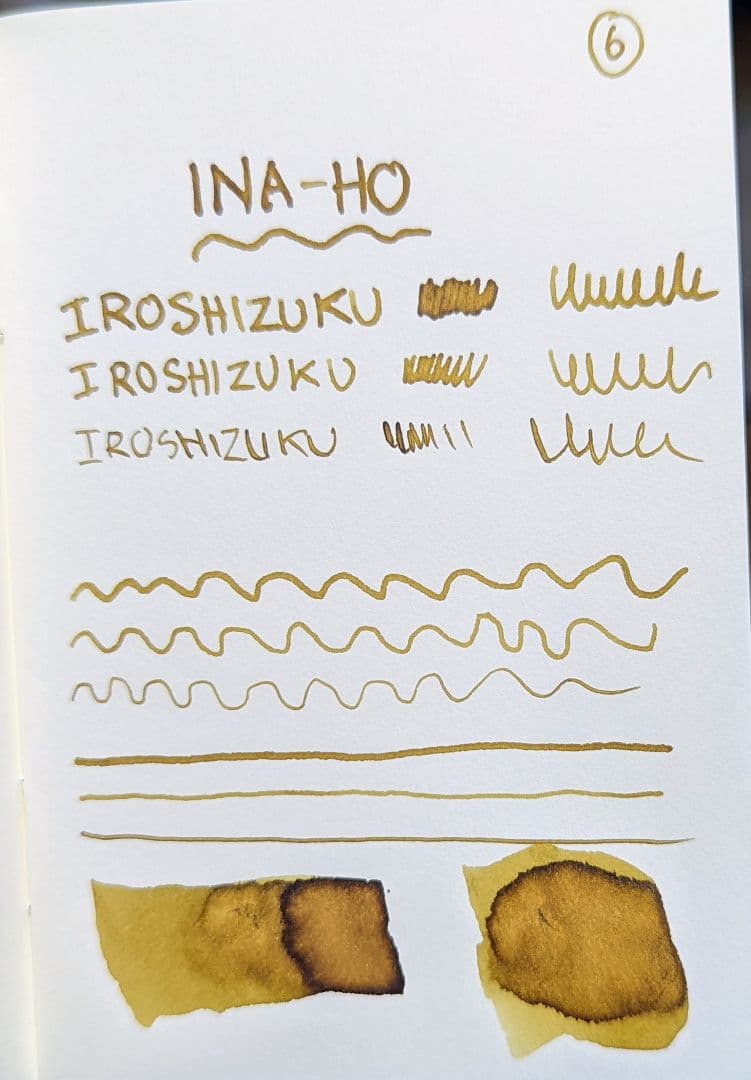 6
INA-HO
IROSHIZUKU
IROSHIZUKU
IROSHIZUKU